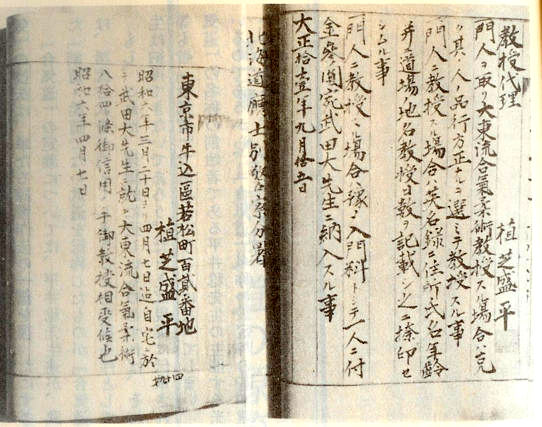 教授代理
植芝盛平
門人ヲ取リ大東流合氣柔術教授スル場合ハ克
ク其ノ人ノ品行方正ナルヲ選ミテ教授スル事
一門人教授ノ場合ハ英名録ニ住所氏名年齢
并ニ道場ノ地名教授日数ヲ記載シ之ニ捺印セ
シムル事
一門人ニ教授ノ場合ハ豫メ入門料トシテ一人ニ付
金參圓宛武田大先生ニ納入スル事
大正拾壹年九月拾五日
北海道膽士別警察分署
東京市牛込區若松町百貳番地
植芝盛平
昭和六年三月二十日ヨリ四月七日迠自宅ニ於
テ武田大先生ニ就キ大東流合氣柔術
八拾四條御信用ノ手御教授相受候也
昭和六年四月七日